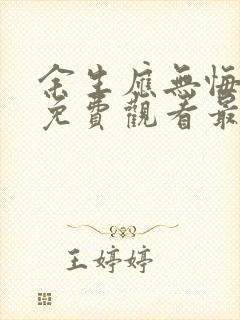 余生應無悔
免費觀看最
王婷婷